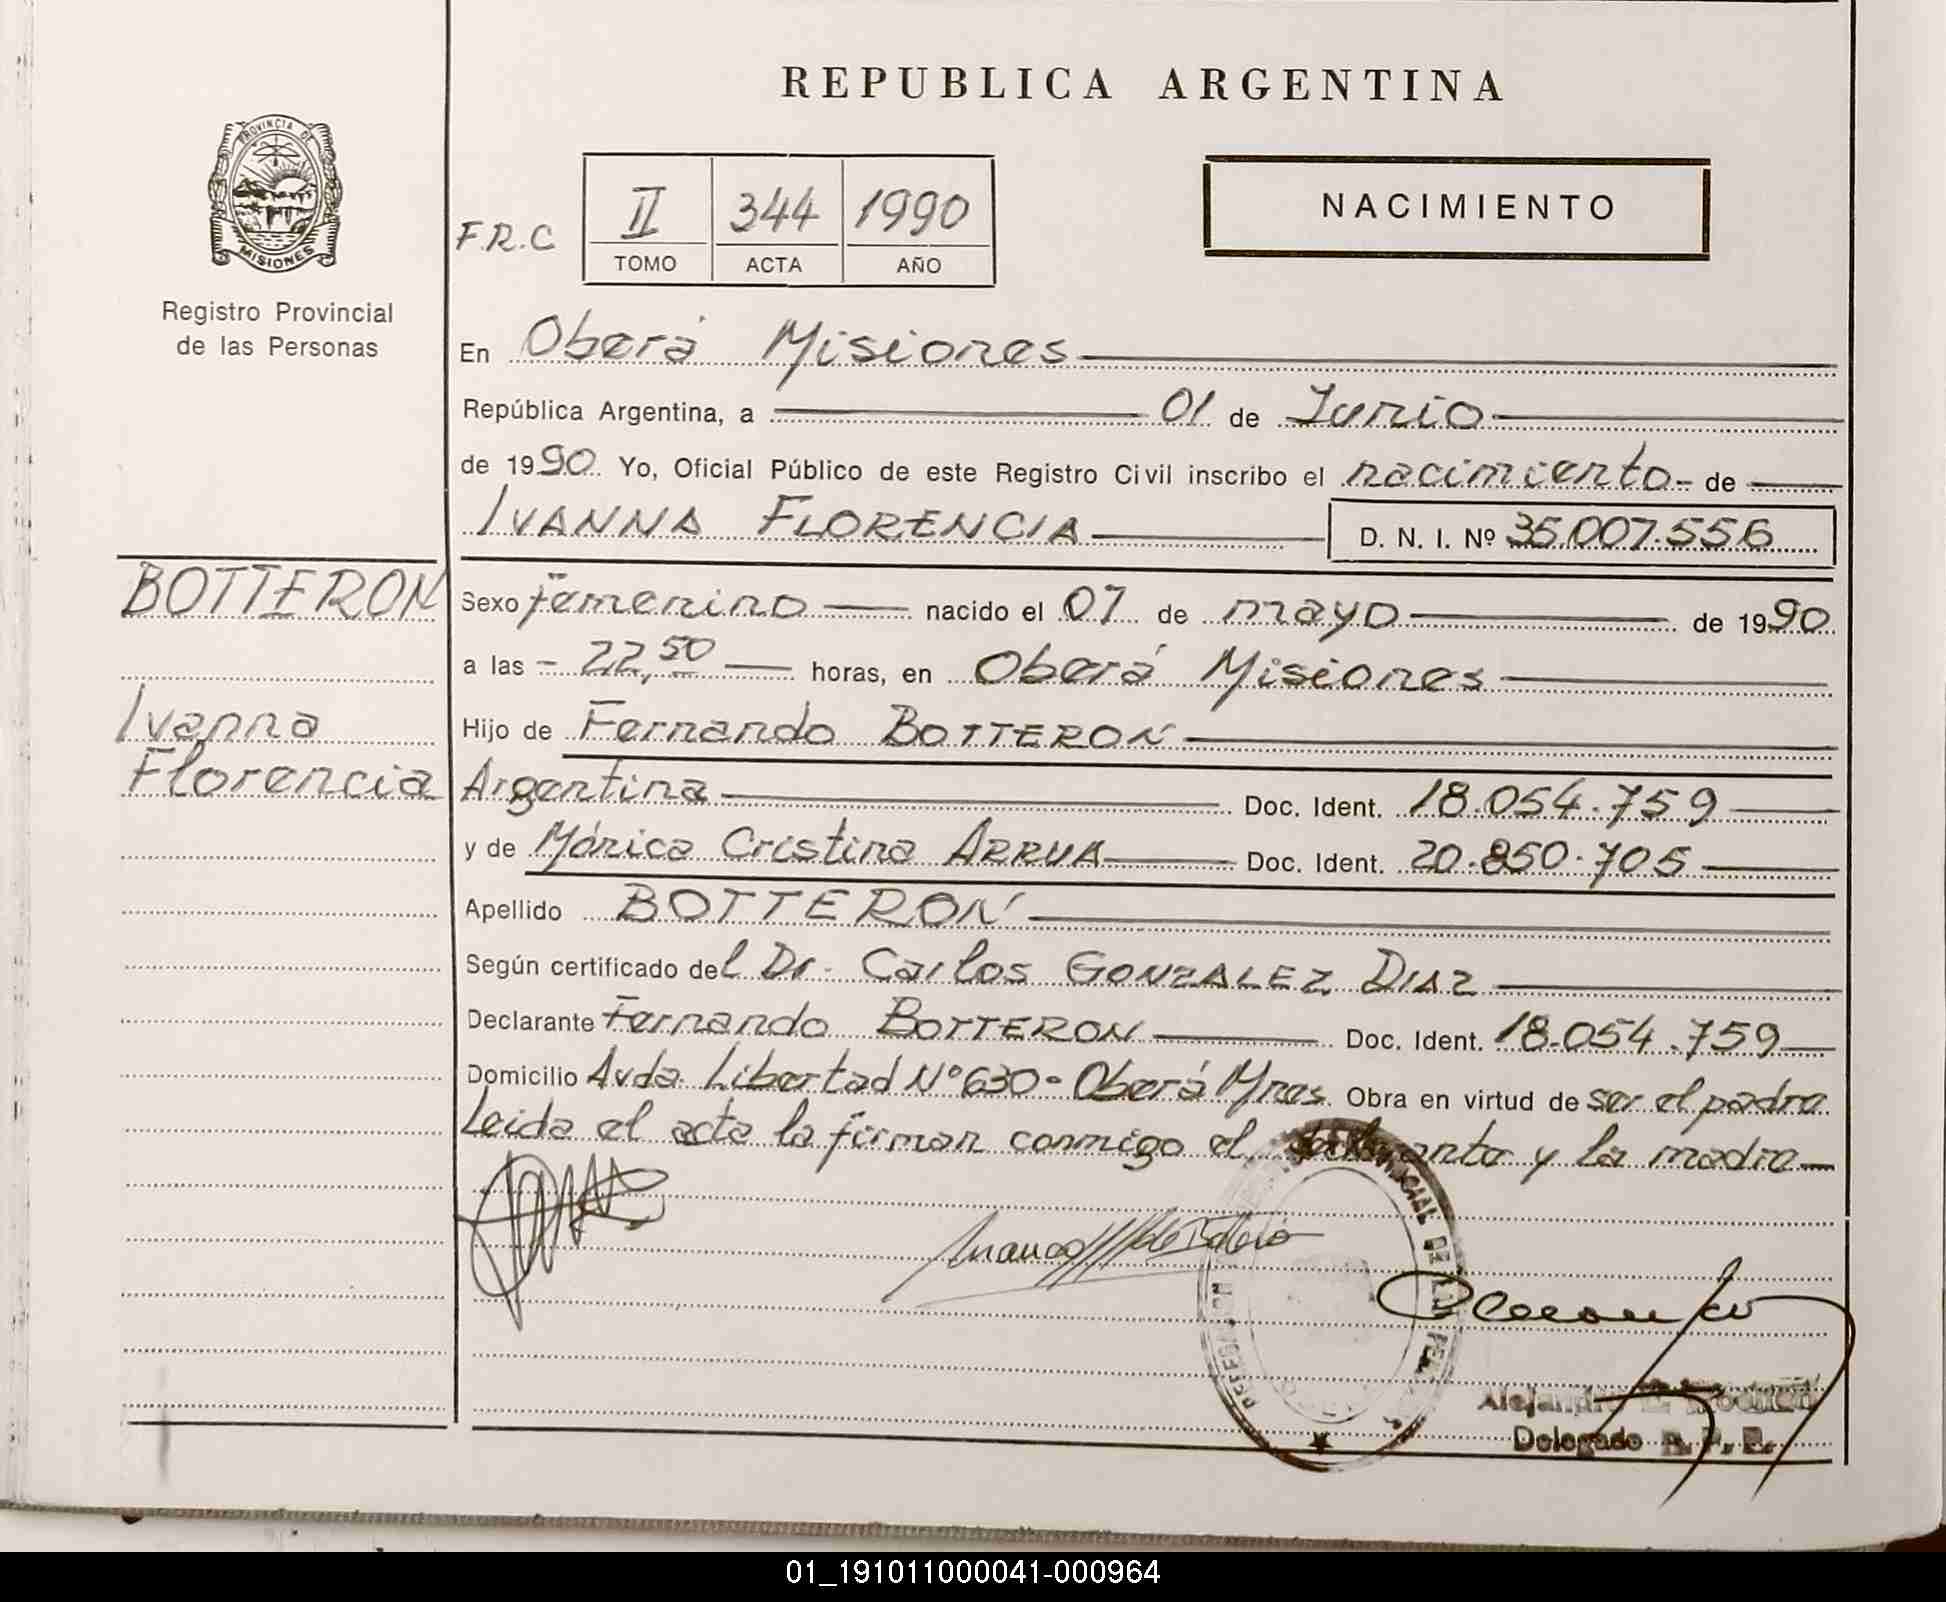 REPUBLICA ARGENTINA
PROVINCIA DE
MISIONES
Registro Provincial
de las Personas
F.R.C
II 344 1990
TOMO ACTA AÑO
NACIMIENTO
En Oberá Misiones
República Argentina, a 01 de Junio
de 1990 Yo, Oficial Público de este Registro Civil inscribo el nacimiento de
IVANNA FLORENCIA D. N. I. Nº 35.007.556
BOTTERON
Ivanna
Florencia
Sexo femenino nacido el 07 de mayo de 1990
a las 22,50 horas, en Oberá Misiones
Hijo de Fernando BOTTERON
Argentina Doc. Ident. 18.054.759
y de Mónica Cristina ARRUA Doc. Ident. 20.850.705
Apellido BOTTERON
Según certificado del Dr. Carlos GONZALEZ DIAZ
Declarante Fernando BOTTERON Doc. Ident. 18.054.759
Domicilio Avda. Libertad Nº 630 - Oberá Mnes. Obra en virtud de ser el padre
Leida el acta la firman conmigo el declarante y la madre
Alejandro E.
Delegado R. P. P.
01_191011000041-000964